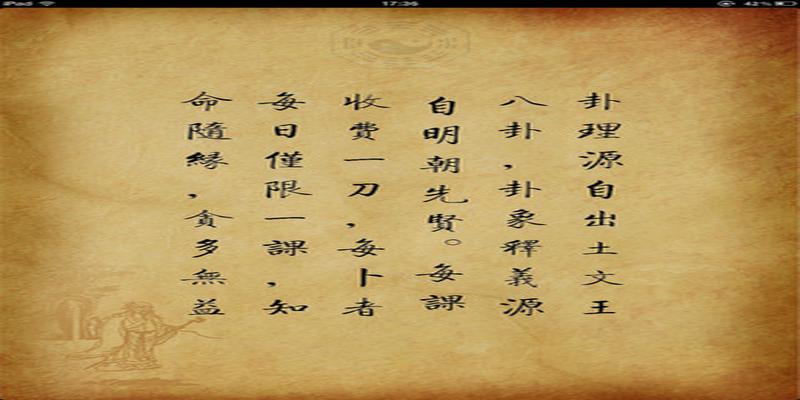 iPad 17:36 42%
卦理源自出土文王
八卦，卦象釋義源
自明朝先賢。每課
收費一刀，每卜者
每日僅限一課，知
命隨緣，貪多無益